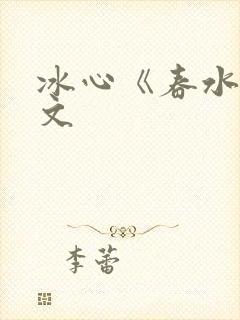 冰心《春水
文
李蕾